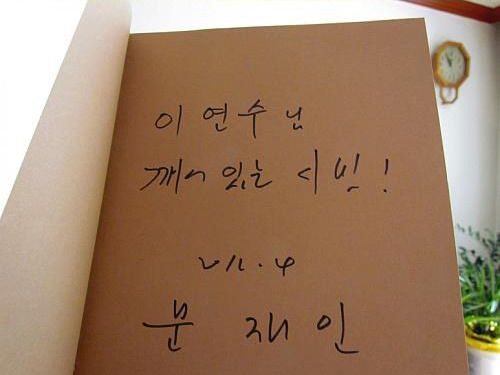 이연수님
깨어있는 시민!
4
문재인